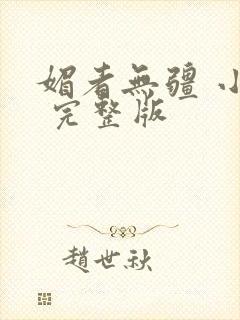 媚者無疆 小
完整版
趙世秋